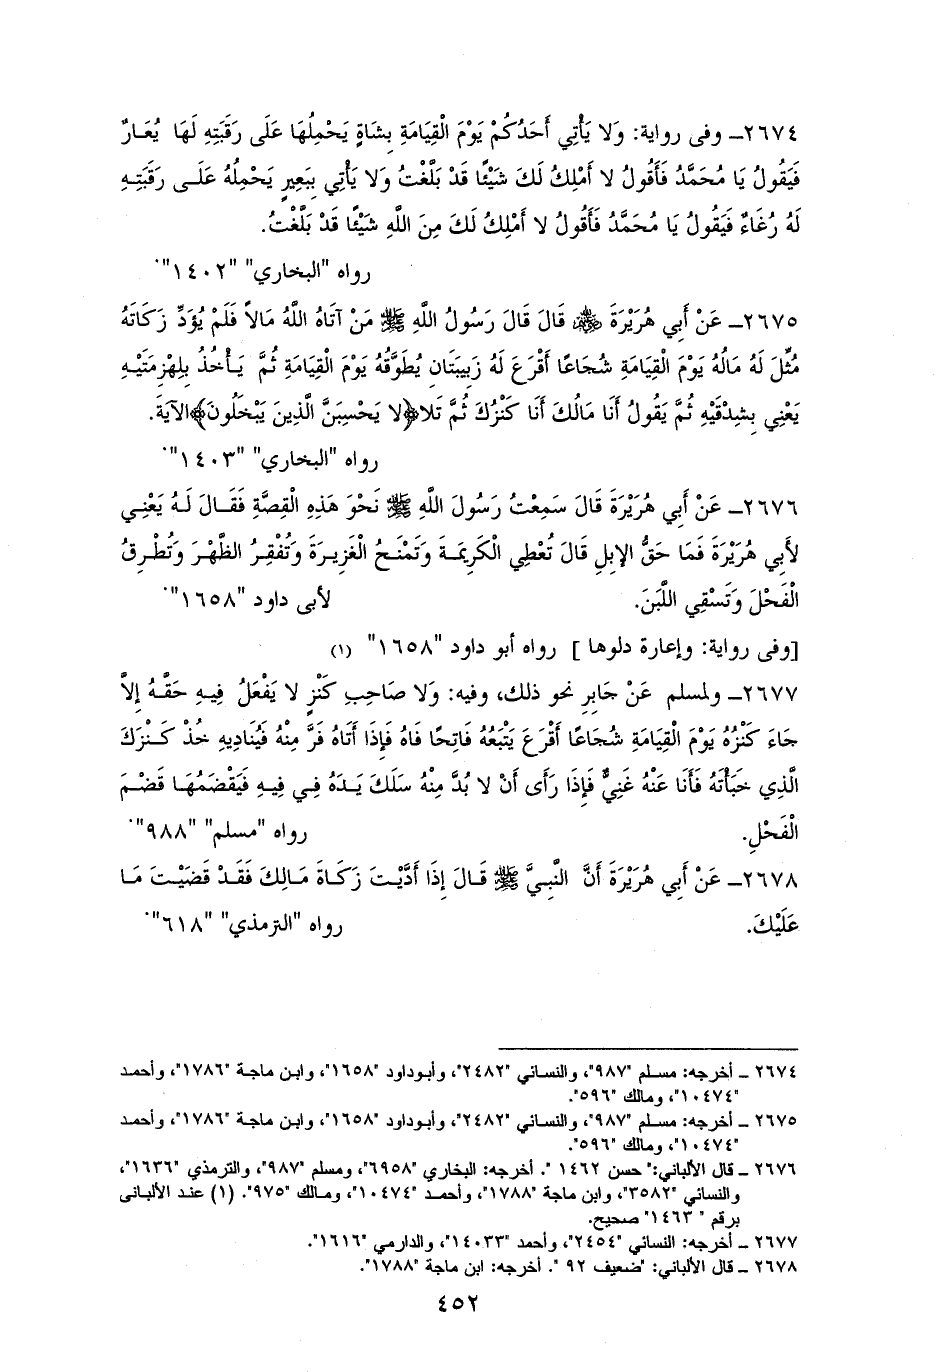 ٢٦٧٤ــ وفى رواية: وَلا يَأْتِي أَحَدُكُمْ يَوْمَ الْقِيَامَةِ بِشَاةٍ يَحْمِلُهَا عَلَى رَقَبَتِهِ لَهَا يُعَارٌ
فَيَقُولُ يَا مُحَمَّدُ فَأَقُولُ لا أَمْلِكُ لَكَ شَيْئًا قَدْ بَلَّغْتُ وَلا يَأْتِي بِبَعِيرٍ يَحْمِلُهُ عَلَـى رَقَبَتِـهِ
لَهُ رُغَاءٌ فَيَقُولُ يَا مُحَمَّدُ فَأَقُولُ لا أَمْلِكُ لَكَ مِنَ اللَّهِ شَيْئًا قَدْ بَلَّغْتُ.
رواه "البخاري" "١٤٠٢".
٢٦٧٥ــ عَنْ أَبِي هُرَيْرَةَ ﵁ قَالَ قَالَ رَسُولُ اللَّهِ ﷺ مَنْ آتَاهُ اللَّهُ مَالاً فَلَمْ يُؤَدِّ زَكَاتَهُ
مُثِّلَ لَهُ مَالُهُ يَوْمَ الْقِيَامَةِ شُجَاعًا أَقْرَعَ لَهُ زَبِيبَتَانِ يُطَوَّقُهُ يَوْمَ الْقِيَامَةِ ثُمَّ يَـأْخُذُ بِلِهْزِمَتَيْـهِ
يَعْنِي بِشِدْقَيْهِ ثُمَّ يَقُولُ أَنَا مَالُكَ أَنَا كَنْزُكَ ثُمَّ تَلا﴿لا يَحْسِبَنَّ الَّذِينَ يَبْخَلُونَ﴾الآيَةَ.
رواه "البخاري" "١٤٠٣".
٢٦٧٦ــ عَنْ أَبِي هُرَيْرَةَ قَالَ سَمِعْتُ رَسُولَ اللَّهِ ﷺ نَحْوَ هَذِهِ الْقِصَّةِ فَقَـالَ لَـهُ يَعْنِـي
لأَبِي هُرَيْرَةَ فَمَا حَقُّ الإِبِلِ قَالَ تُعْطِي الْكَرِيمَـةَ وَتَمْنَـحُ الْغَزِيـرَةَ وَتُفْقِـرُ الظَّهْـرَ وَتُطْـرِقُ
الْفَحْلَ وَتَسْقِي اللَّبَنَ. لأبى داود "١٦٥٨".
[وفى رواية: وإعارة دلوها ] رواه أبو داود "١٦٥٨" (١)
٢٦٧٧ــ ولمسلم عَنْ جَابِرٍ نحو ذلك، وفيه: وَلا صَاحِبِ كَنْزٍ لا يَفْعَلُ فِيـهِ حَقَّـهُ إِلاَّ
جَاءَ كَنْزُهُ يَوْمَ الْقِيَامَةِ شُجَاعًا أَقْرَعَ يَتْبَعُهُ فَاتِحًا فَاهُ فَإِذَا أَتَاهُ فَرَّ مِنْهُ فَيُنَادِيهِ خُذْ كَـنْزَكَ
الَّذِي خَبَأْتَهُ فَأَنَا عَنْهُ غَنِيٌّ فَإِذَا رَأَى أَنْ لا بُدَّ مِنْهُ سَلَكَ يَـدَهُ فِـي فِيـهِ فَيَقْضَمُهَـا قَضْـمَ
الْفَحْلِ. رواه "مسلم" "٩٨٨".
٢٦٧٨ــ عَنْ أَبِي هُرَيْرَةَ أَنَّ النَّبِـيَّ ﷺ قَـالَ إِذَا أَدَّيْـتَ زَكَـاةَ مَـالِكَ فَقَـدْ قَضَيْـتَ مَـا
عَلَيْكَ. رواه "الترمذي" "٦١٨".
٢٦٧٤ ــ أخرجه: مسلم "٩٨٧"، والنسائي "٢٤٨٢"، وأبوداود "١٦٥٨"، وابن ماجة "١٧٨٦"، وأحمد
"١٠٤٧٤"، ومالك "٥٩٦".
٢٦٧٥ ــ أخرجه: مسلم "٩٨٧"، والنسائي "٢٤٨٢"، وأبوداود "١٦٥٨"، وابن ماجة "١٧٨٦"، وأحمد
"١٠٤٧٤"، ومالك "٥٩٦".
٢٦٧٦ ــ قال الألباني:" حسن ١٤٦٢ ". أخرجه: البخاري "٦٩٥٨"، ومسلم "٩٨٧"، والترمذي "١٦٣٦"،
والنسائي "٣٥٨٢"، وابن ماجة "١٧٨٨"، وأحمد "١٠٤٧٤"، ومالك "٩٧٥". (١) عند الألبانى
برقم " ١٤٦٣" صحيح.
٢٦٧٧ ــ أخرجه: النسائي "٢٤٥٤"، وأحمد "١٤٠٣٣"، والدارمي "١٦١٦".
٢٦٧٨ ــ قال الألباني: "ضعيف ٩٢ ". أخرجه: ابن ماجة "١٧٨٨".
٤٥٢